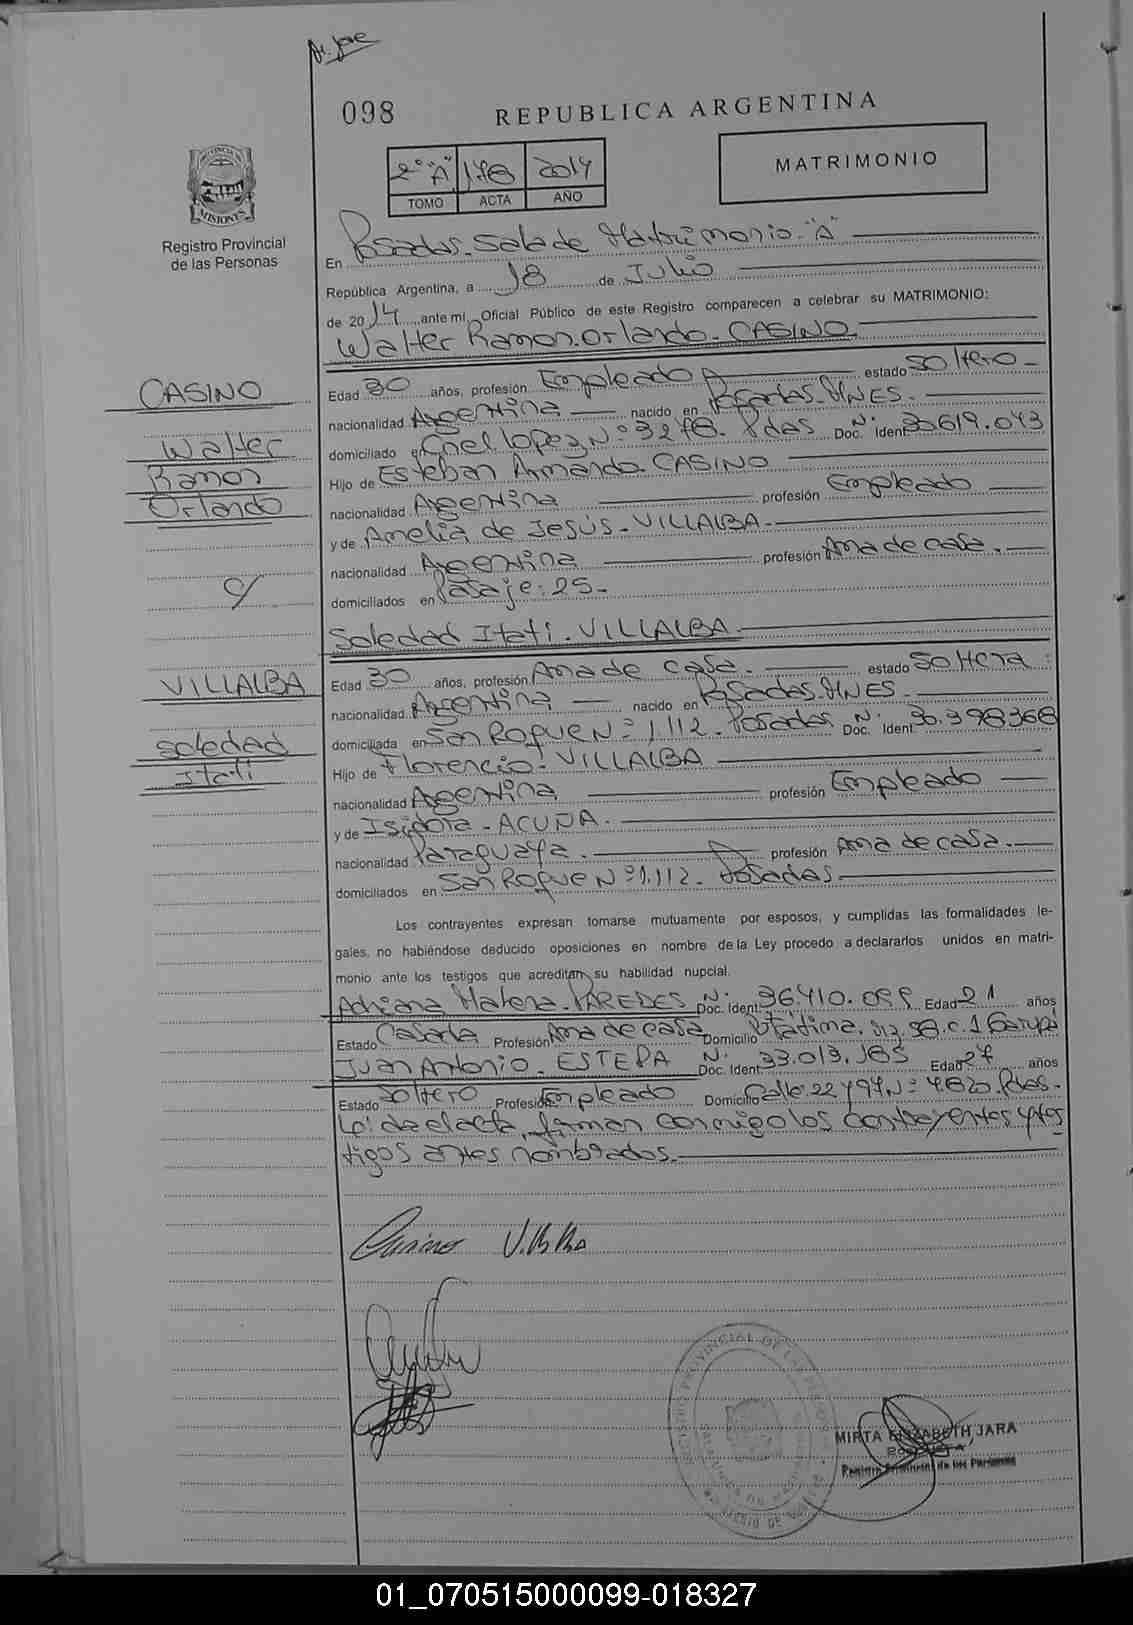 098
REPUBLICA ARGENTINA
2° "A" 178 2014
TOMO ACTA AÑO
MATRIMONIO
PROVINCIA DE
MISIONES
Registro Provincial
de las Personas
En Posadas. Sala de Matrimonio "A"
República Argentina, a 18 de Julio
de 2014 ante mi, Oficial Público de este Registro comparecen a celebrar su MATRIMONIO:
Walter Ramon. Orlando. CASINO.
CASINO
Walter
Ramon
Orlando
c/
VILLALBA
Soledad
Itati
Edad 30 años, profesión Empleado estado Soltero
nacionalidad Argentina nacido en Posadas. MNES.
domiciliado en Cnel Lopez N° 3278. Pdas Doc. N. Ident. 30.619.043
Hijo de Esteban Armando. CASINO
nacionalidad Argentina profesión Empleado
y de Amelia de Jesús. VILLALBA.
nacionalidad Argentina profesión Ama de casa.
domiciliados en Pasaje: 25.
Soledad Itati. VILLALBA.
Edad 30 años, profesión Ama de casa. estado Soltera
nacionalidad Argentina nacido en Posadas. MNES.
domiciliada en San Roque N° 1.112. Posadas Doc. N. Ident. 30.398.368
Hijo de Florencio. VILLALBA
nacionalidad Argentina profesión Empleado
y de Isidora. ACUÑA.
nacionalidad Paraguaya. profesión Ama de casa.
domiciliados en San Roque N° 1.112. Posadas.
Los contrayentes expresan tomarse mutuamente por esposos, y cumplidas las formalidades le-
gales, no habiéndose deducido oposiciones en nombre de la Ley procedo a declararlos unidos en matri-
monio ante los testigos que acreditan su habilidad nupcial.
Adriana Malena. PAREDES Doc. N. Ident. 36.410.099 Edad 21 años
Estado Casada Profesión Ama de casa Domicilio Fátima. Mz. 98. c. 1 Garupá
Juan Antonio. ESTEPA Doc. N. Ident. 33.013.185 Edad 27 años
Estado Soltero Profesión Empleado Domicilio Calle. 22 y 94 N° 4.620. Pdas.
Leída el acta, firman conmigo los contrayentes y tes
tigos antes nombrados.
Casino Villalba
MIRTA ELIZABETH JARA
Registro Provincial de las Personas
01_070515000099-018327